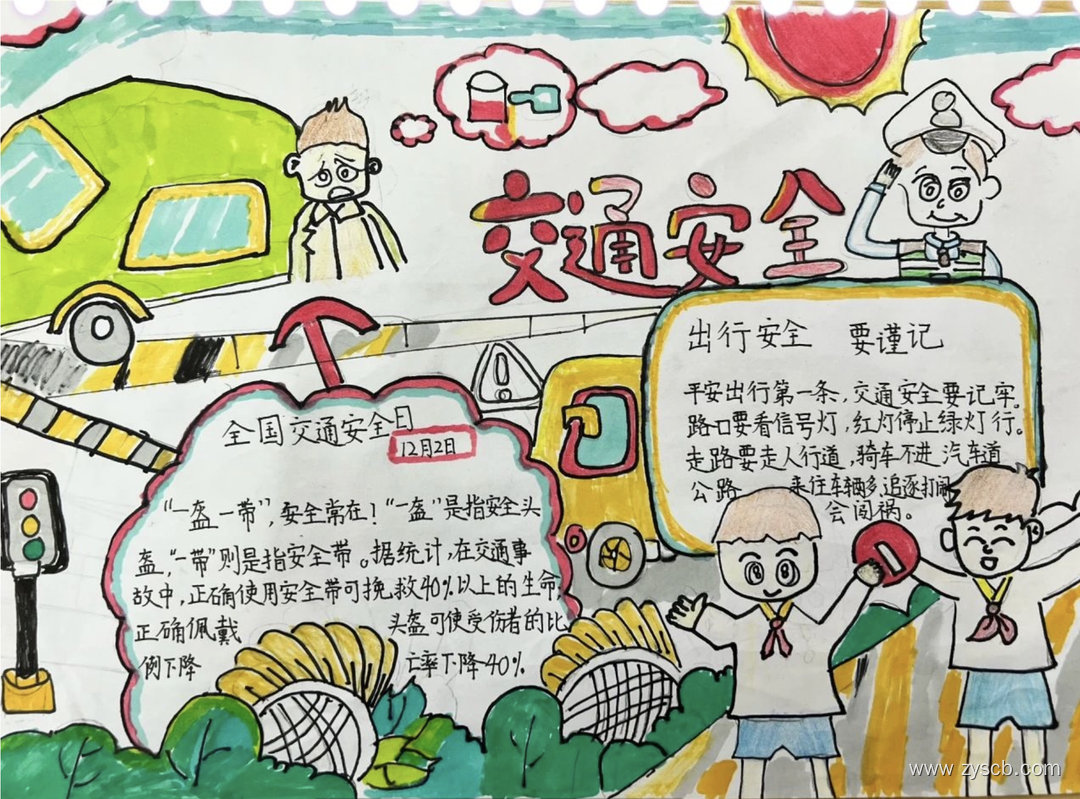 交通安全
出行安全 要谨记
平安出行第一条,交通安全要记牢。
路口要看信号灯,红灯停止绿灯行。
走路要走人行道,骑车不进汽车道
公路 来往车辆多,追逐打闹
会闯祸。
全国交通安全日
12月2日
“一盔一带”,安全常在!“一盔”是指安全头
盔,“一带”则是指安全带。据统计,在交通事
故中,正确使用安全带可挽救40%以上的生命,
正确佩戴 头盔可使受伤者的比
例下降 亡率下降40%
www.zyscb.com